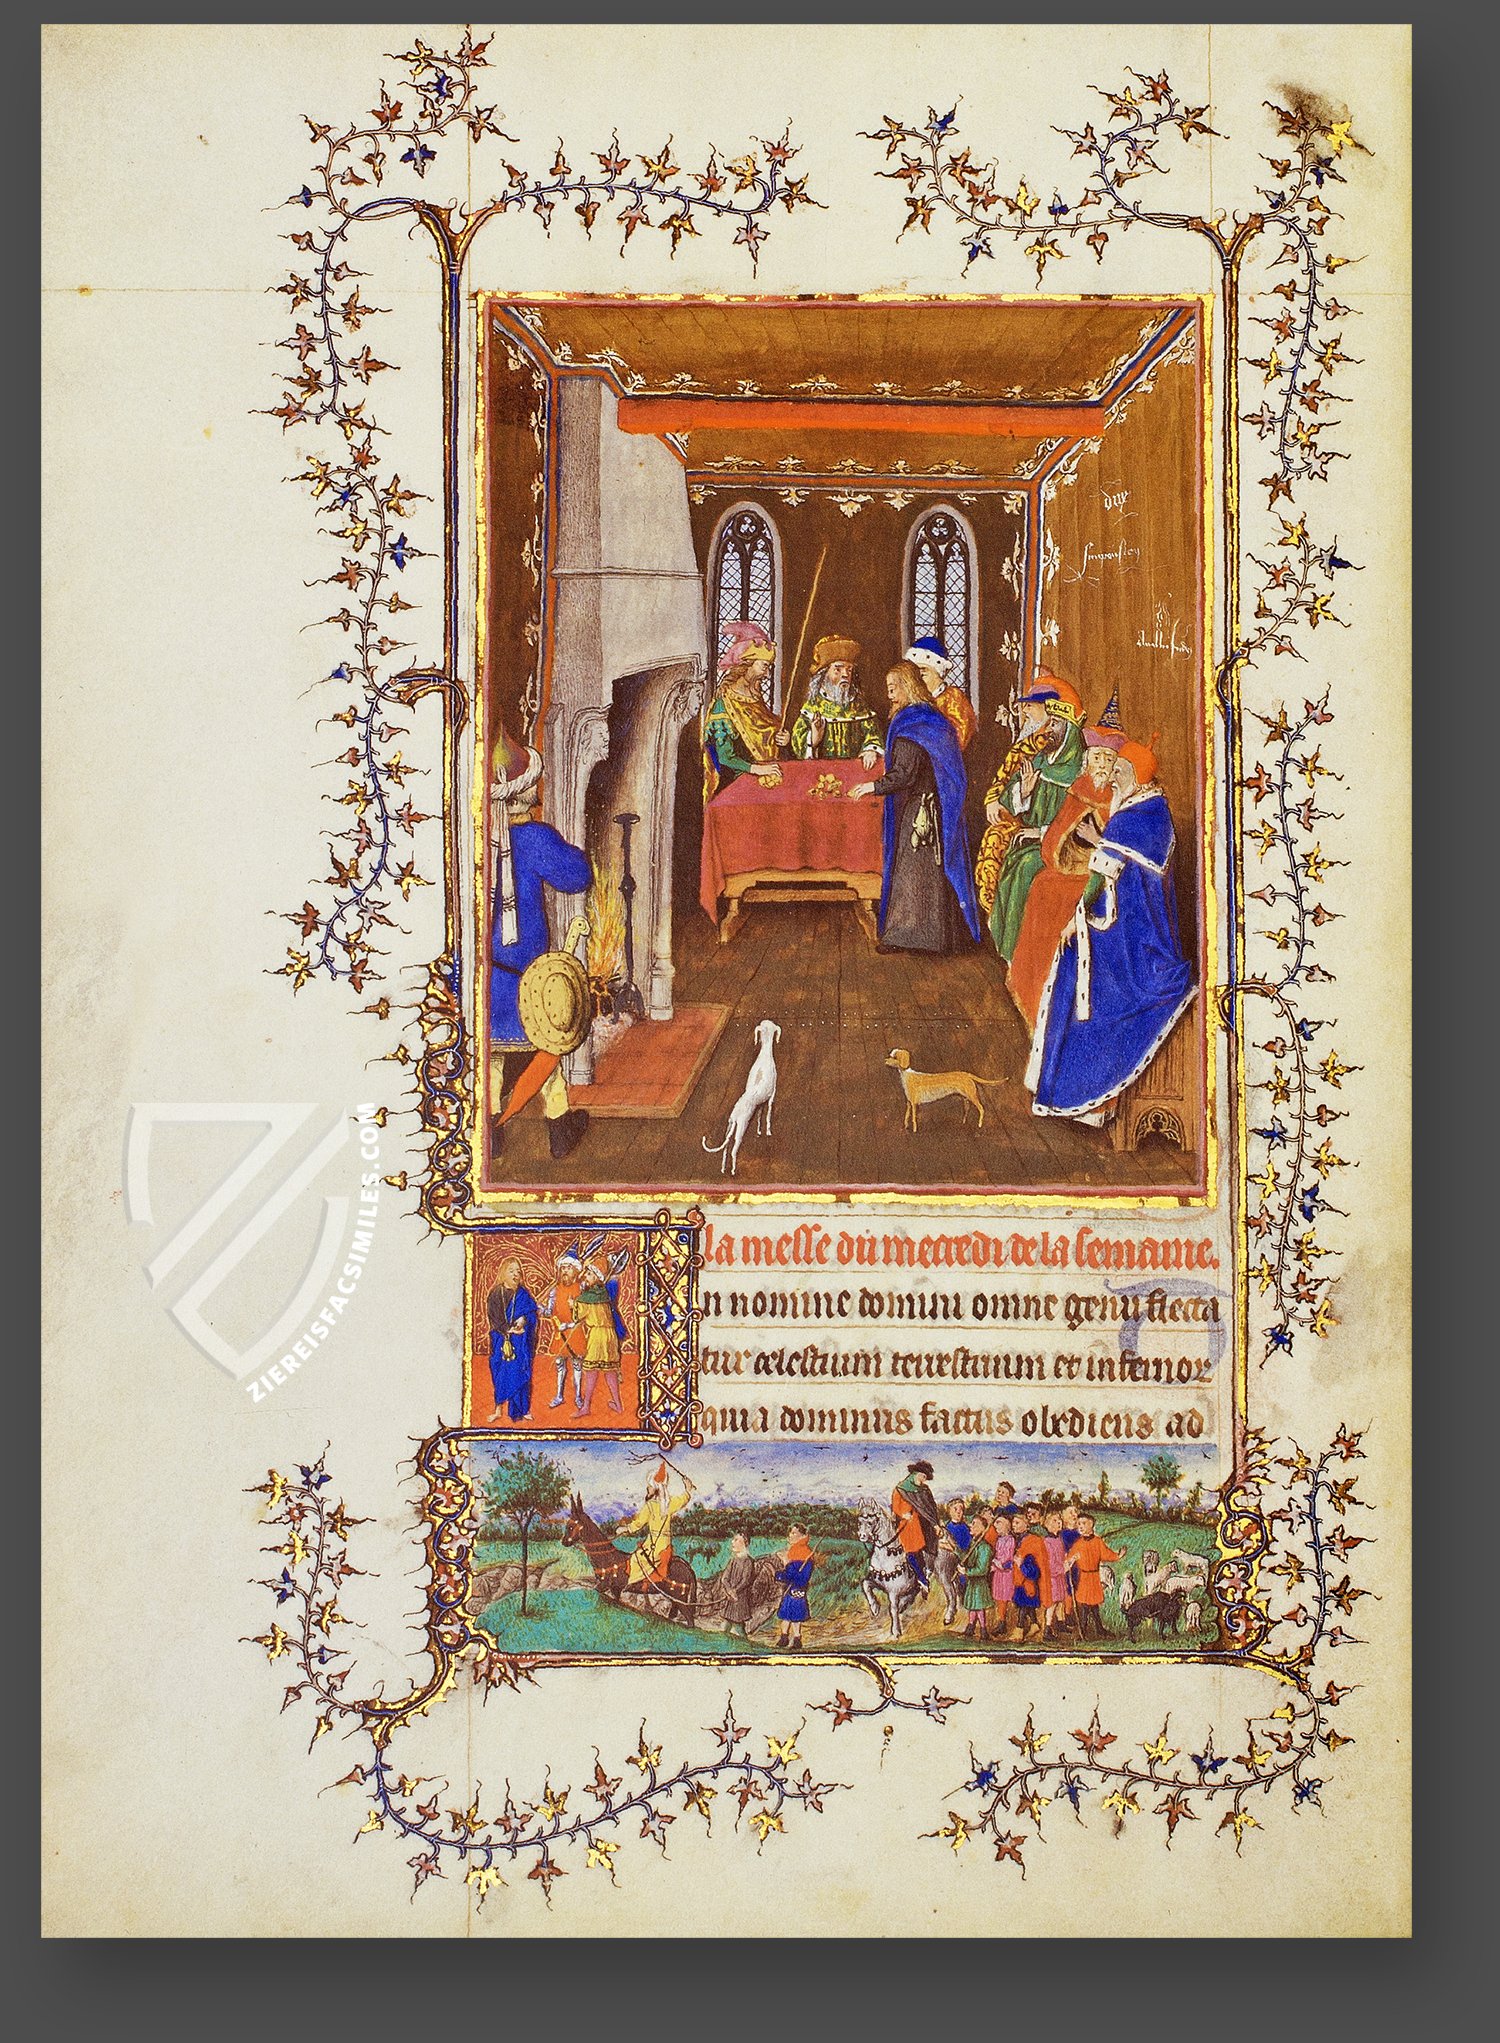 la messe du mecredi de la semaine.
n nomine domini omne genu flecta
tur celestium terrestrium et infernor
quia dominus factus obediens ad
ZIEREISFACSIMILES.COM